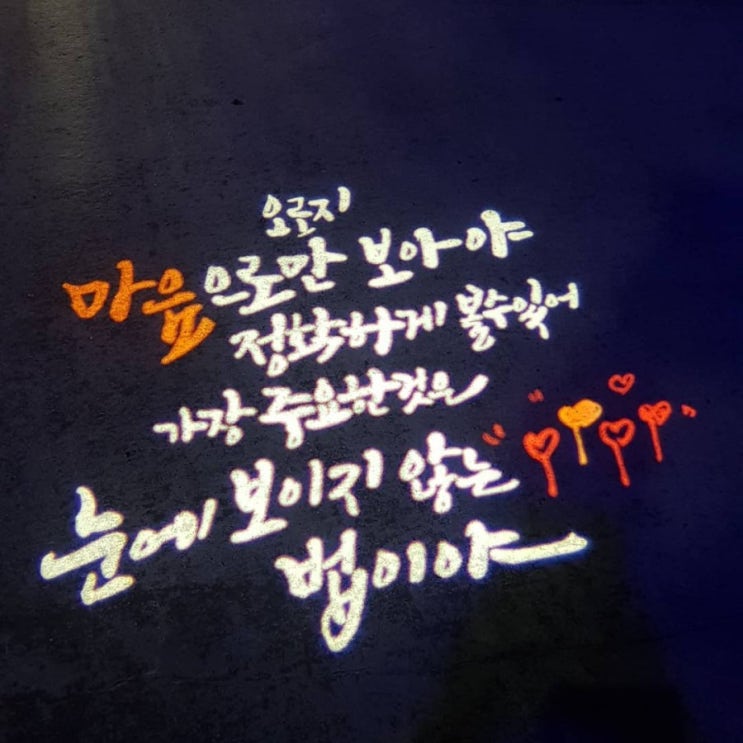 오로지
마음으로만 보아야
정확하게 볼수있어
가장 중요한것은
눈에 보이지 않는
법이야